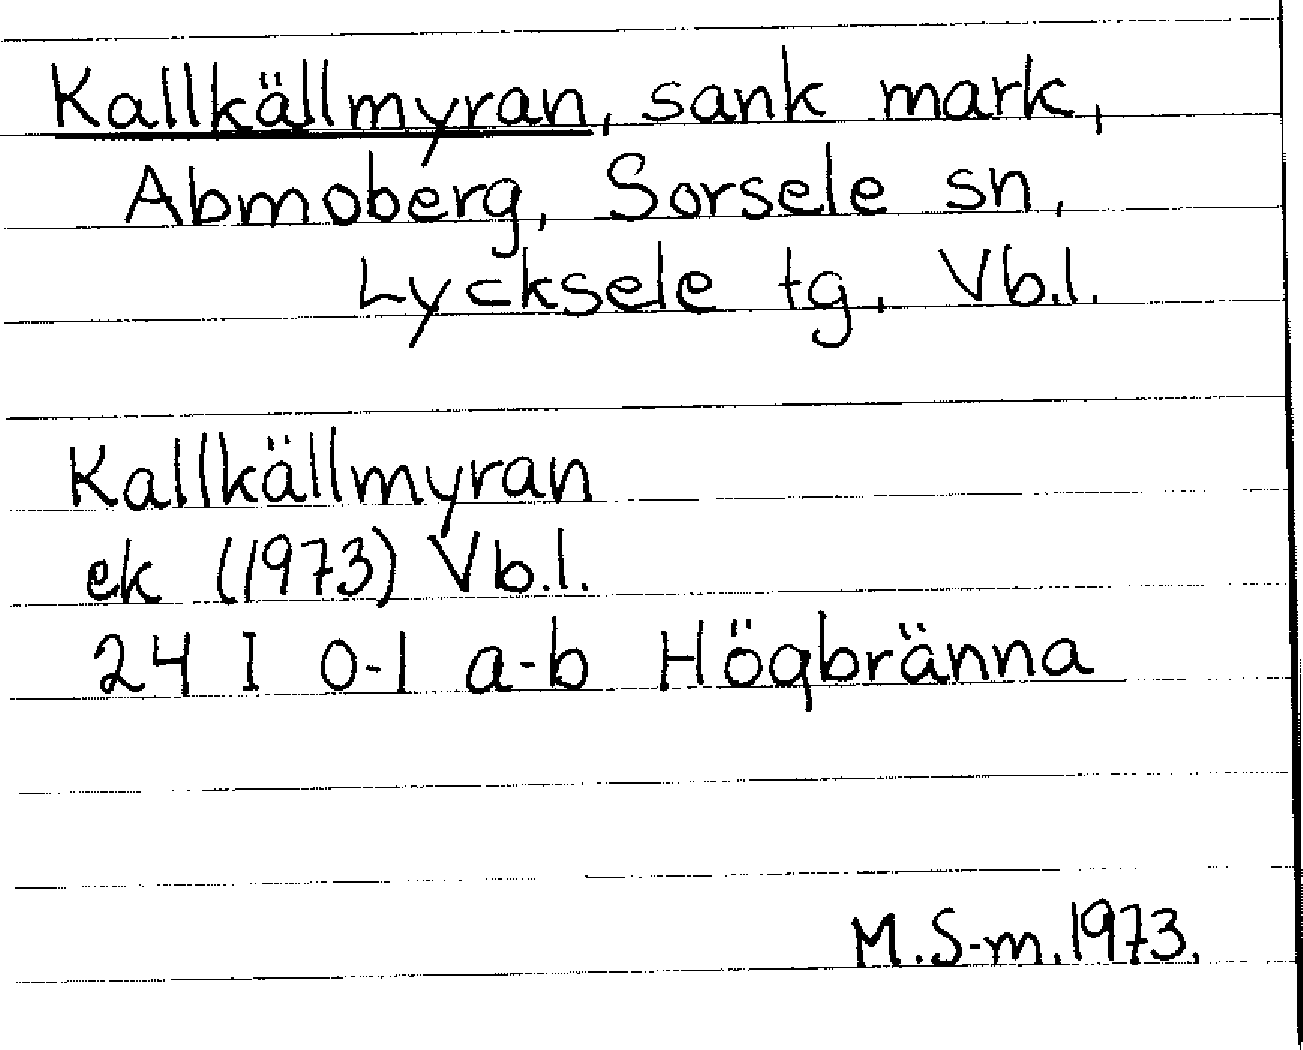 Kallkällmyran, sank mark,
Abmoberg, Sorsele sn,
Lycksele tg, Vb.l.
Kallkällmyran
ek (1973) Vb.l.
24 I 0-1 a-b Högbränna
M.S-m.1973.